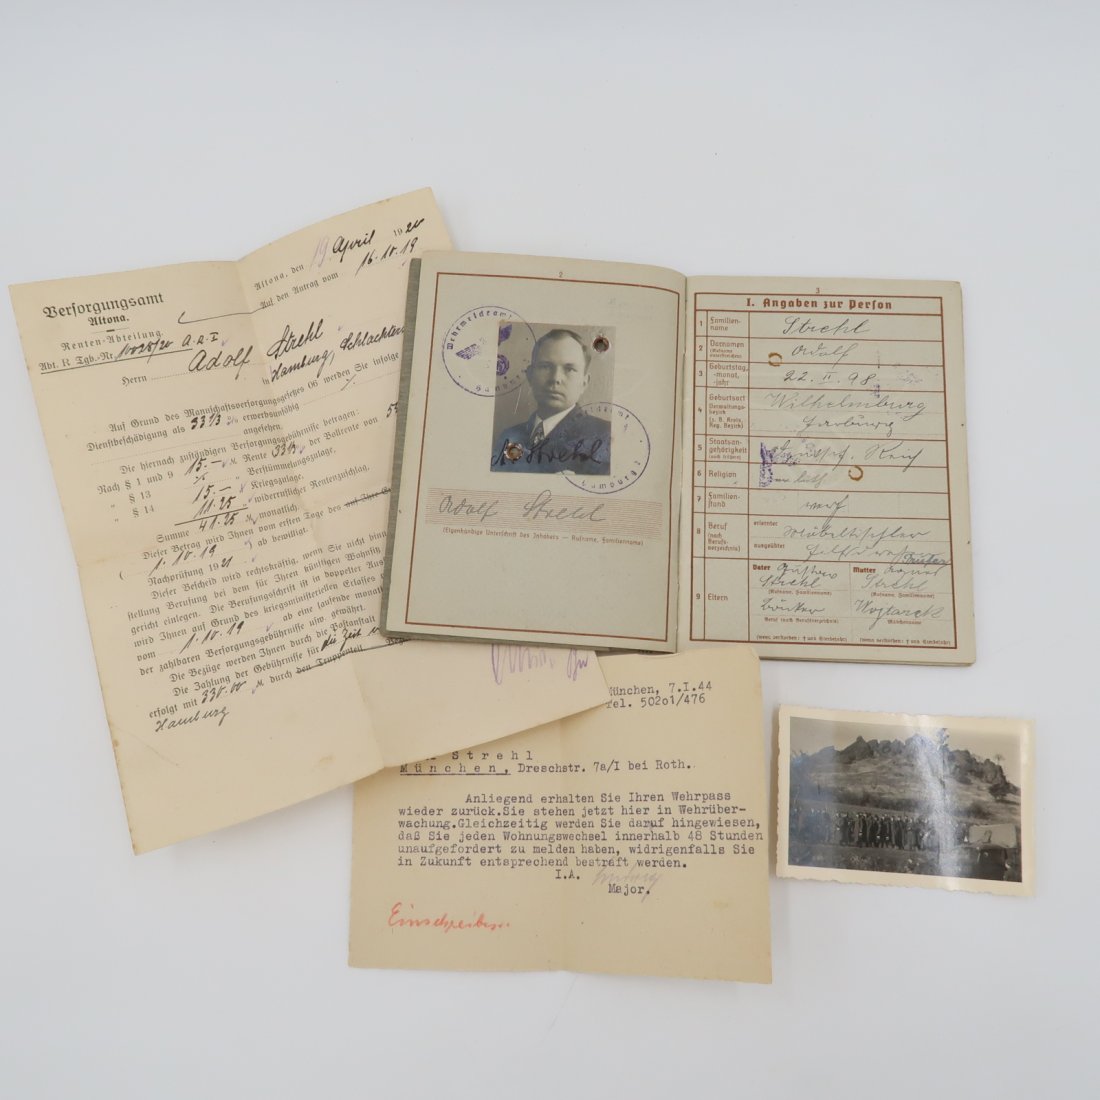 Versorgungsamt
Altona.
Renten-Abteilung.
Abt. R Tgb.-Nr. 10028/20 A.R.I
Altona, den 19 April 1920
Auf den Antrag vom 16.10.19
Herrn Adolf Strehl
in Hamburg,
Auf Grund des Mannschaftsversorgungsgesetzes 06 werden Sie infolge
Dienstbeschädigung als 33 1/3 % erwerbsunfähig
angesehen.
Die hiernach zuständigen Versorgungsgebührnisse betragen:
Nach § 1 und 9 15.– M Rente 33 1/3 der Vollrente von
" § 13 Verstümmelungszulage.
" § 14 15.– " Kriegszulage.
11.25 " widerruflicher Rentenzuschlag.
Summe 41.25 M monatlich.
Dieser Betrag wird Ihnen vom ersten Tage des
( 1.10.19 ) ab bewilligt.
Nachprüfung 1921
Dieser Bescheid wird rechtskräftig, wenn Sie nicht binnen
stellung Berufung bei dem für Ihren Wohnsitz
gericht einlegen. Die Berufungsschrift ist in doppelter
wird Ihnen auf Grund des kriegsministeriellen Erlasses
vom 1.10.19 ab eine laufende monatl
der zahlbaren Versorgungsgebührnisse usw. gewährt.
Die Bezüge werden Ihnen durch die Postanstalt
Die Zahlung der Gebührnisse für die Zeit
erfolgt mit 330.00 M durch den Truppenteil
Hamburg
2
Wehrmeldeamt
Hamburg 2
A. Strehl
Adolf Strehl
(Eigenhändige Unterschrift des Inhabers — Rufname, Familienname)
3
I. Angaben zur Person
1 Familienname Strehl
2 Vornamen (Rufname unterstreichen) Adolf
3 Geburtstag, -monat, -jahr 22. II. 98
4 Geburtsort Verwaltungsbezirk (z. B. Kreis, Reg. Bezirk) Wilhelmburg
Harburg
5 Staatsangehörigkeit (auch frühere) Deutsch. Reich
6 Religion
7 Familienstand verh
8 Beruf (nach Berufsverzeichnis) erlernter Möbeltischler
ausgeübter
9 Eltern
Vater Gustav
Strehl
(Rufname, Familienname)
Beruf (nach Berufsverzeichnis)
(wenn verstorben: † und Sterbejahr)
Mutter
Strehl
(Rufname, Familienname)
Mädchenname
(wenn verstorben: † und Sterbejahr)
München, 7.I.44
Tel. 50201/476
Strehl
München, Dreschstr. 7a/I bei Roth.
Anliegend erhalten Sie Ihren Wehrpass
wieder zurück.Sie stehen jetzt hier in Wehrüber-
wachung.Gleichzeitig werden Sie darauf hingewiesen,
daß Sie jeden Wohnungswechsel innerhalb 48 Stunden
unaufgefordert zu melden haben, widrigenfalls Sie
in Zukunft entsprechend bestraft werden.
I.A.
Major.
Einschreiben